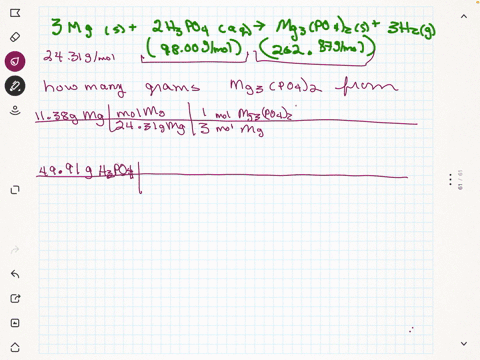 3 Mg (s) + 2H₃PO₄ (aq) → Mg₃(PO₄)₂(s) + 3H₂(g)
24.31g/mol (98.00g/mol) (262.87g/mol)
how many grams Mg₃(PO₄)₂ from
11.38g Mg | mol Mg | 1 mol Mg₃(PO₄)₂
24.31g Mg | 3 mol Mg
49.91 g H₃PO₄
61 / 61